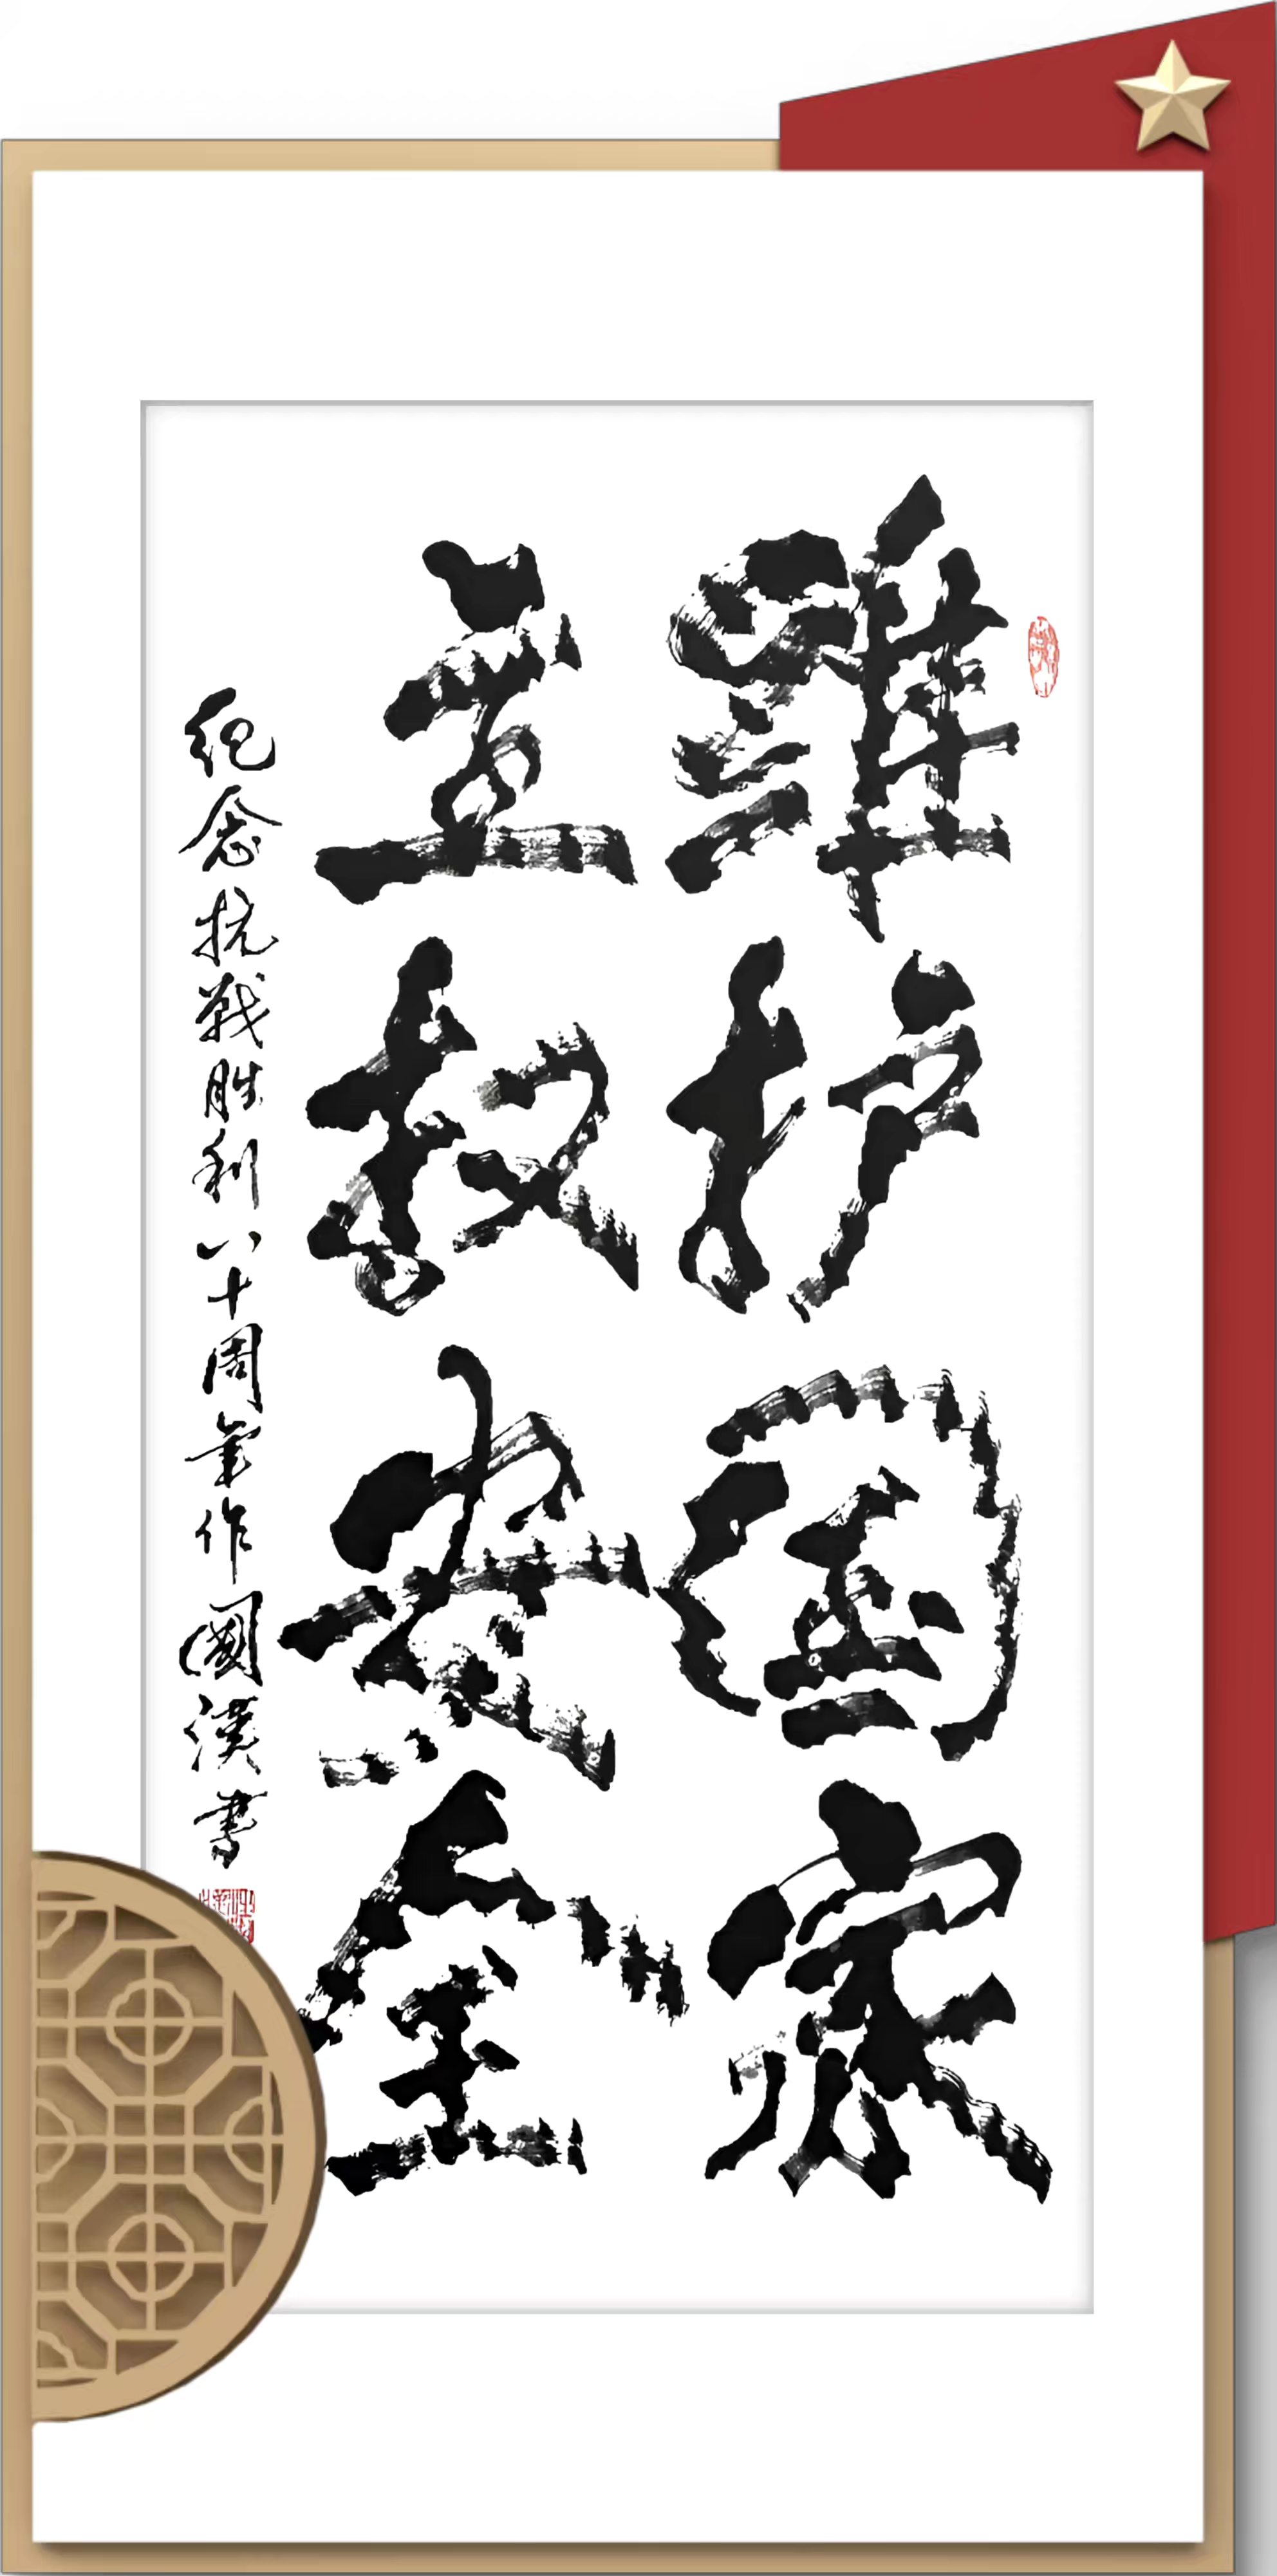 維护国家
主权安全
纪念抗战胜利八十周年作國漢書